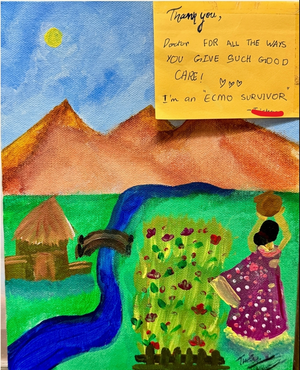 Thank you,
Doctor FOR ALL THE WAYS
YOU GIVE SUCH GOOD
CARE!
I'm an "ECMO SURVIVOR"